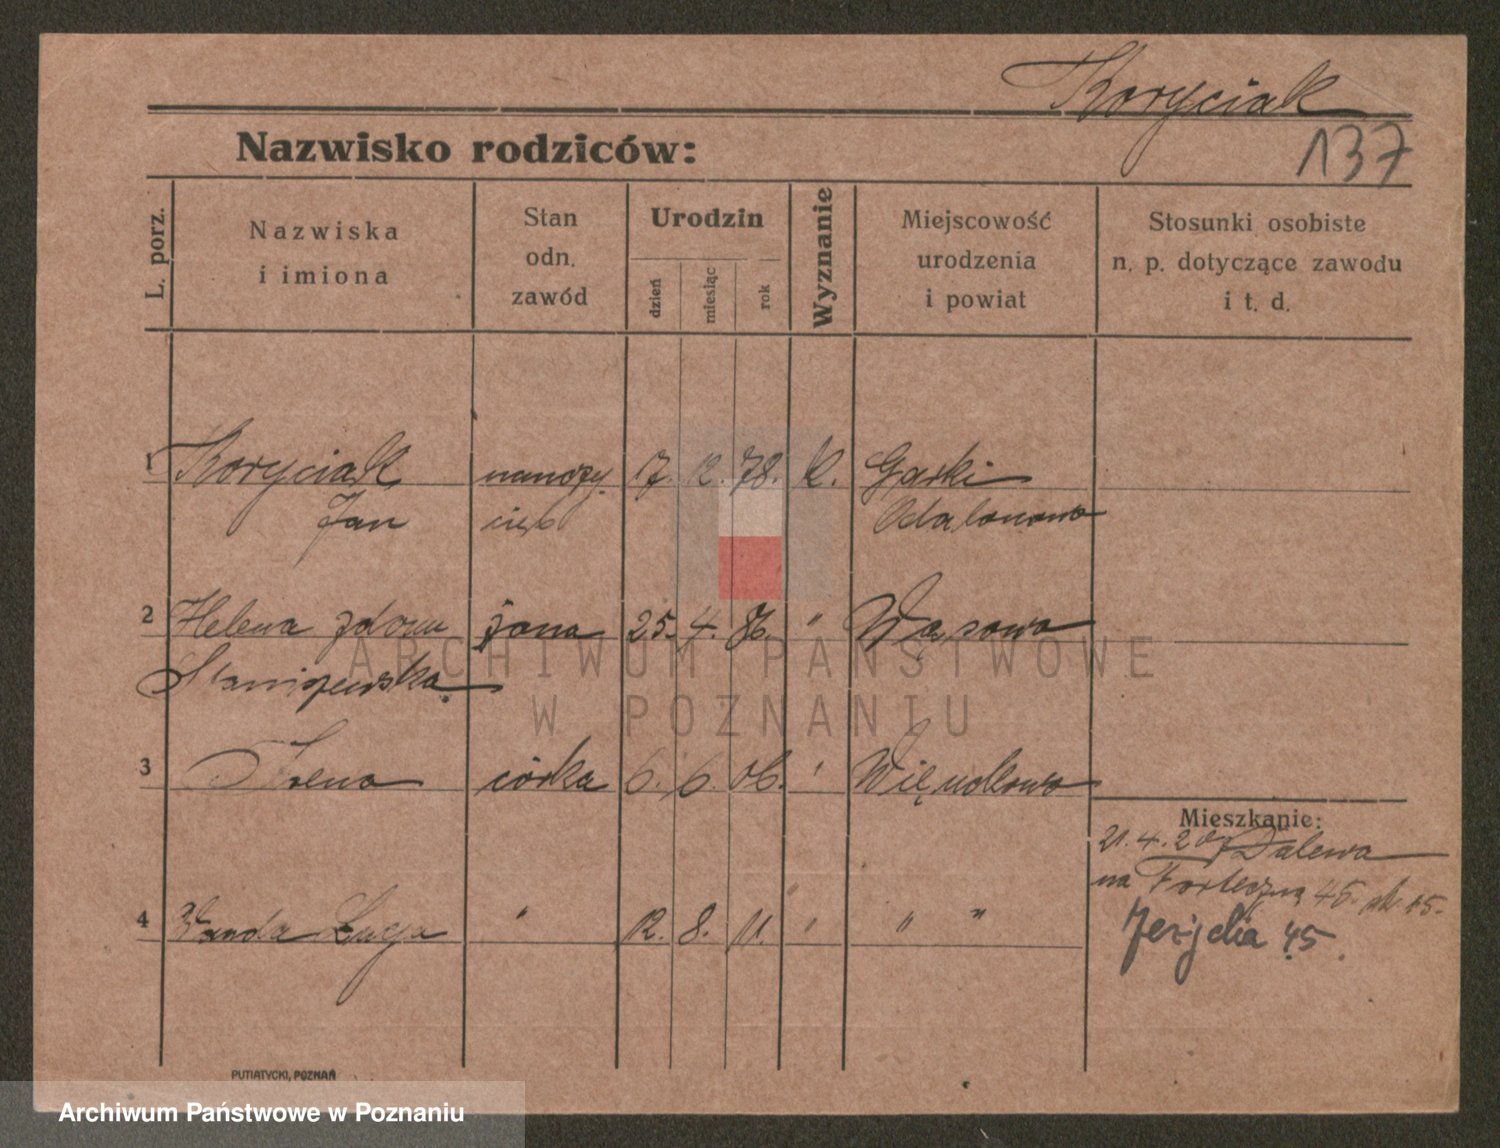 Koryciak
137
Nazwisko rodziców:
L. porz.
Nazwiska
i imiona
Stan
odn.
zawód
Urodzin
dzień
miesiąc
rok
Wyznanie
Miejscowość
urodzenia
i powiat
Stosunki osobiste
n. p. dotyczące zawodu
i t. d.
1 Koryciak nauczy 17. 12. 78. k. Gąski
Jan ciel Odalonowo
2 Helena z domu żona 25. 4. 86. " Wąsowo
Staniszewska
3 Irena córka 6. 6. 06. "
4 Wanda Łucja " 12. 8. 11. " " "
Mieszkanie:
21.4.20 Dalewa
na Forteczną 45.
45.
PUTIATYCKI, POZNAŃ
ARCHIWUM PAŃSTWOWE
W POZNANIU
Archiwum Państwowe w Poznaniu